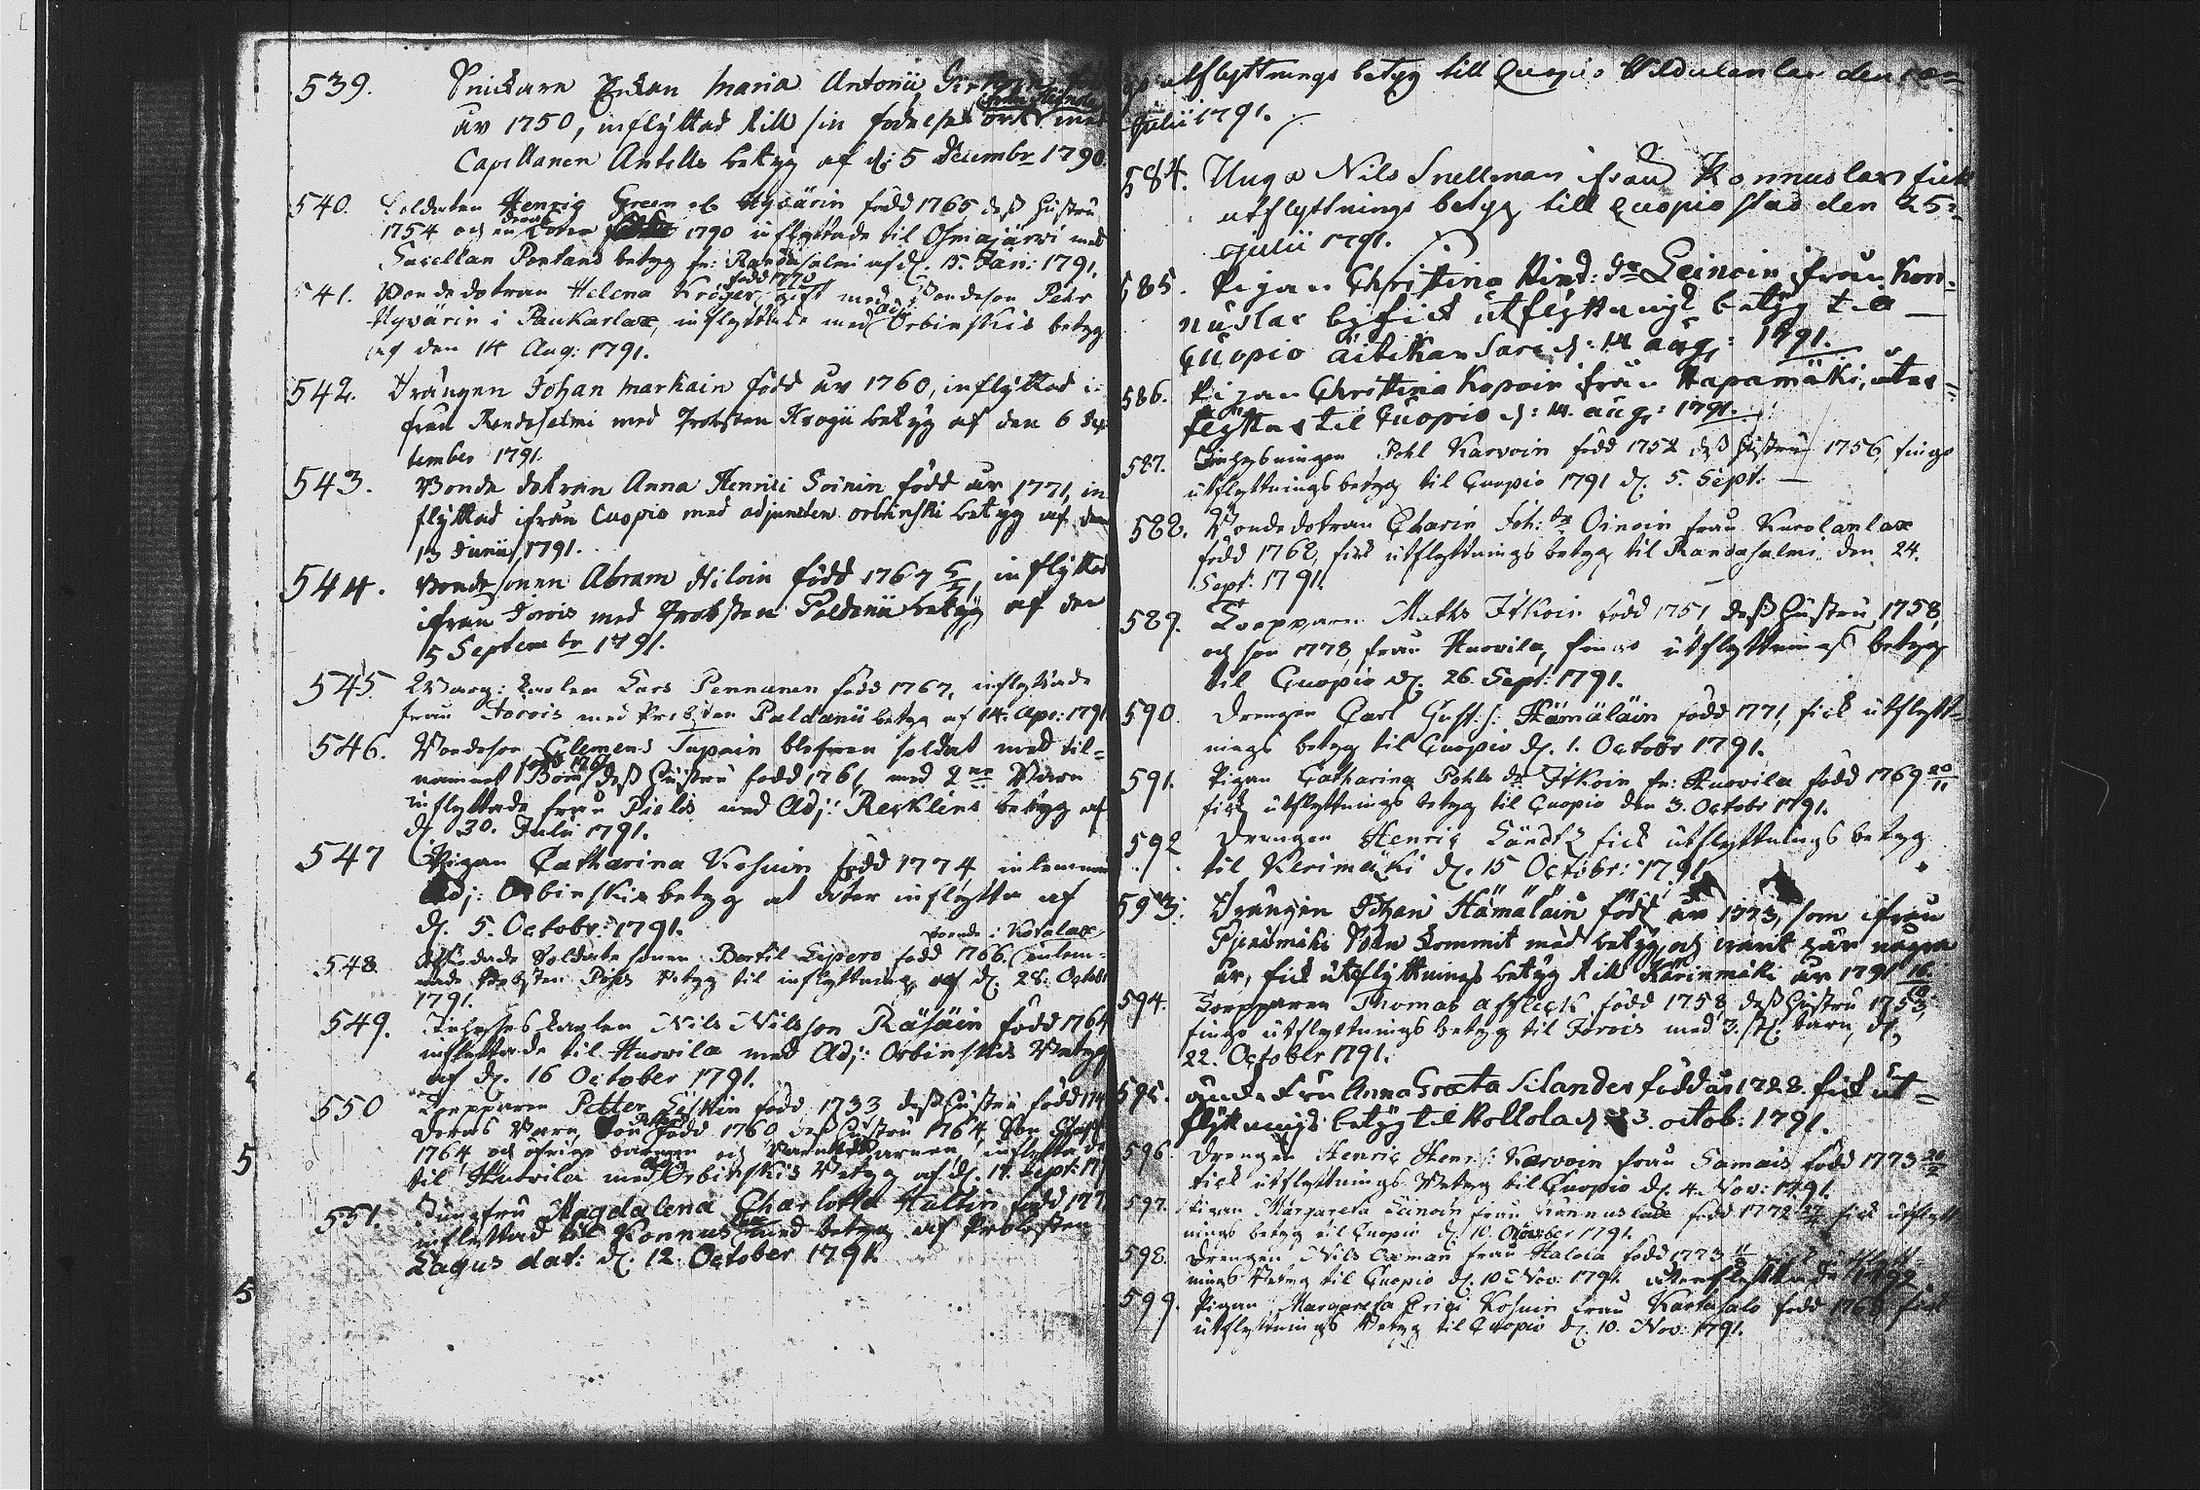 539. Snickare Enkan Maria Antonii
år 1750, inflyttad till sin födelse ort med
Capellanen Antells betyg af d: 5 Decembr 1790.
540. Soldaten Henric Green el. Hyvärin född 1765, dess hustru
1754 och en deras 1790 inflyttade til Osmajärvi med
Sacellan Pontans betyg fr: Randasalmi af d. 15. Jan: 1791.
541. Bondedotran Helena Kröger, född 1770 gift med Bondeson Pehr
Hyvärin i Paukarlax, inflyttade med Adj: Orbinskis betyg
af den 14 Aug: 1791.
542. Drängen Johan Markain född år 1760, inflyttad i
från Randasalmi med Probsten Krogii betyg af den 6 Sep
tember 1791.
543. Bonde dotran Anna Henrici Soinin född år 1771, in
flyttad ifrån Cuopio med adjuncten Orbinski betyg af den
13 Junii 1791.
544. Bondesonen Abram Hiloin född 1767 5/7, inflyttad
ifrån Jorois med Probsten Poldanii betyg af den
5 Septembr 1791.
545. Lars Pennanen född 1767, inflyttade
från Jorois med Probsten Paldanii betyg af 14. Apr: 1791
546. Bondeson Clemens Tapain blefven soldat med til-
namnet Bom, dess Hustru född 1761, med 2ne Barn
inflyttade från Pielis med Adj: Recklins betyg af
d. 30. Julii 1791.
547 Pigan Catharina Kosuin född 1774, inlemnade
Adj: Orbinskis betyg at åter inflytta af
d. 5. Octobr: 1791.
boende i Kovalax
548 Afskedade Soldate sonen Bertil Lipero född 1766. inlem-
nade Probsten betyg til inflyttning af d. 28. Octob
1791.
549. Inhyses karlen Nils Nilsson Räsäin född 1764
inflyttade til Huovila med Adj: Orbinskis Betyg
af d. 16 October 1791.
550 Torpparen Petter född 1733, dess Hustru född
Deras Barn, Son född 1760, dess Hustru 1764, Son
1764 och öfrige barnen och Barnabarnen, inflyttade
til Huovila med Adj: Orbinskis Betyg af d. 17. Sept: 17
551. Jungfru Magdalena Charlotta Haltin född 177
inflyttad til Konnuslax med betyg af Probsten
Lagus dat: d. 12. October 1791.
utflyttnings betyg till Quopio den
Julii 1791.
584. Unga Nils Snellman ifrån Konnuslax fick
utflyttnings betyg till Quopio stad den 25:
Julii 1791.
585. Pigan Christina Pird: dr Leinoin ifrån Kon-
nuslax by fick utflyttnings betyg til
Cuopio d: 14 aug: 1791.
586. Pigan Christina Kopoin från Hapamäki, utes-
flyttas til Cuopio d: 14. aug: 1791.
587. Inhysningen Pohl Karvoin född 1752 dess Hustru 1756, fingo
utflyttningsbetyg til Cuopio 1791 d. 5. Sept:
588. Bondedotran Charin Joh: dr Oinoin från Kurolanlax
född 1768, fick utflyttnings betyg til Randasalmi den 24.
Sept: 1791.
589. Torpparen Maths Itkoin född 1751, dess Hustru 1758,
och son 1778, från Huovila, fingo utflyttnings betyg
til Cuopio d. 26. Sept: 1791.
590. Drengen Carl Gust: s: Hämäläin född 1771, fick utflytt-
nings betyg til Cuopio d. 1. Octobr 1791.
591. Pigan Catharina Pohls dr Itkoin fr: Huovila född 1769 20/11
fick utflyttnings betyg til Cuopio den 3. Octobr 1791.
592 Drengen Henric fick utflyttnings betyg
til Kerimäki d. 15 Octobr: 1791
593: Drängen Johan Hämäläin född år 1773, som ifrån
kommit med betyg och varit här några
år, fick utflyttnings betyg till Kärimäki år 1791 16/10
594. Torpparen Thomas Affleck född 1758, dess Hustru 1753,
fingo utflyttnings betyg til Jorois med 3. st. barn, d.
22. October 1791.
595. Enke Fru Anna Greta Silander född år 1728. fick ut-
flyttnings betyg til Hollola d: 3. octob: 1791.
596. Drengen Henric Henr: s: Karvoin från Samais född 1773 20/2
fick utflyttnings Betyg til Cuopio d. 4. Nov: 1791.
597. Pigan Margareta Leinoin från Konnuslax född 1772 fick utflytt
nings betyg til Cuopio d. 10. October 1791.
598. Drengen Nils från född 1773 fick utflytt
nings Betyg til Cuopio d. 10 Nov: 1791. återflyttade 1792
599. Pigan Margareta Erici Kosuin från Kartasalo född 1768 fick
utflyttnings Betyg til Cuopio d. 10. Nov: 1791.
5
5